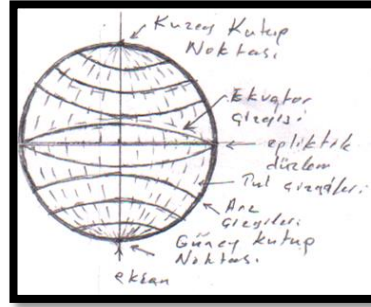 Kuzey Kutup
Noktası
Ekvator
çizgisi
epliktik
düzlem
Tul çizgileri
Arz
çizgileri
Güney Kutup
Noktası
eksen